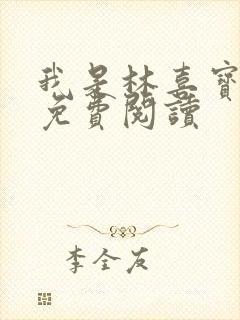 我是林喜寶
免費閱讀
李全友